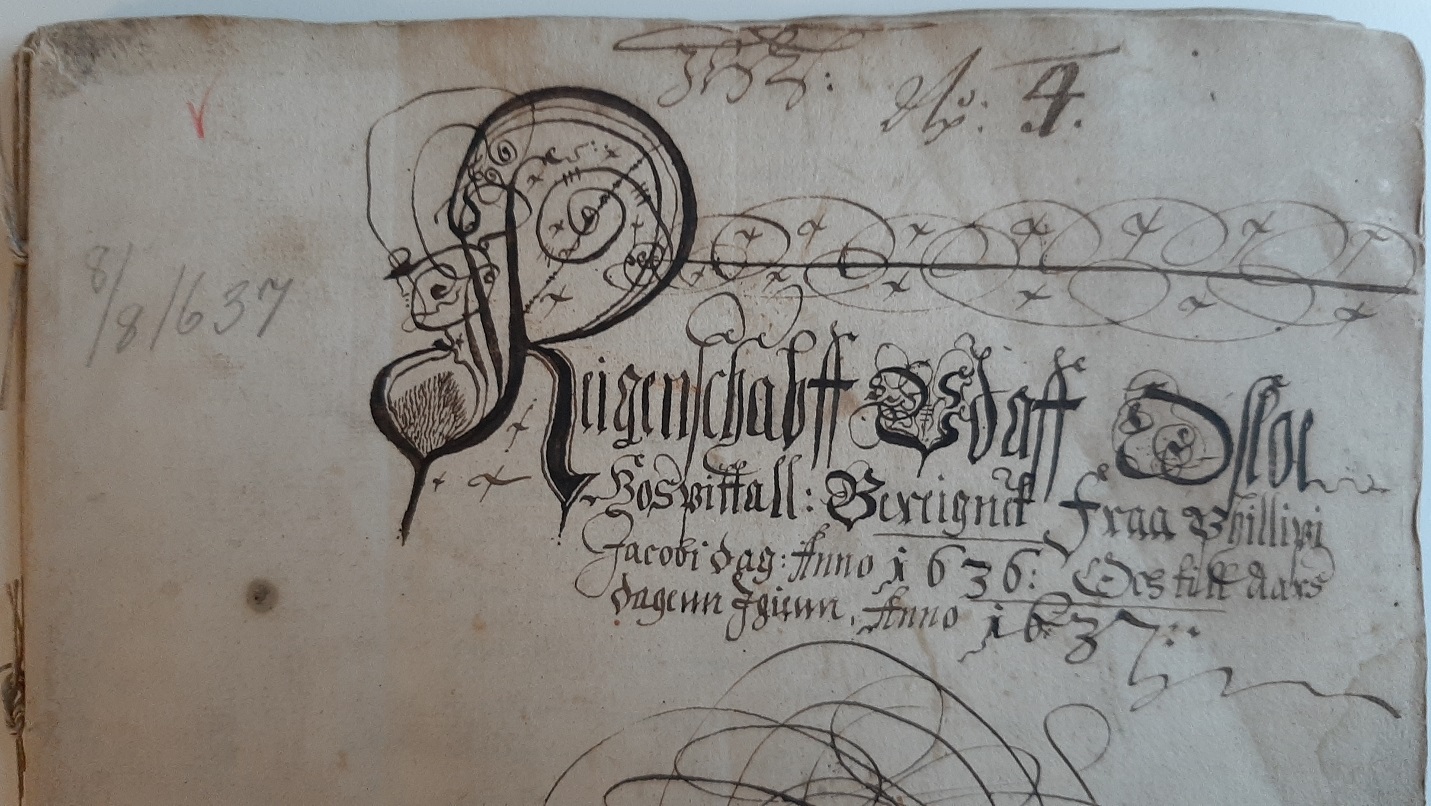 No: 4.
8/8 1637
Reigenschabff Wdaff Osloe
Hospittall: Bereignet Fraa Phillipi
Jacobi dag: Anno 1636: Oes till Aars
dagenn Igienn, Anno 1637: